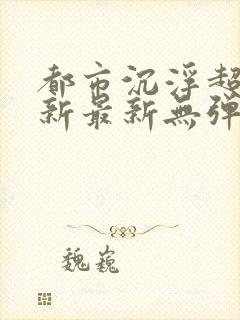 都市沉浮超
新最新無弹
魏巍